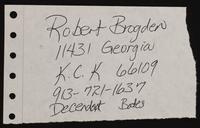 Robert Brogden
11431 Georgia
K.C.K 66109
913-721-1637
Decendent Boles